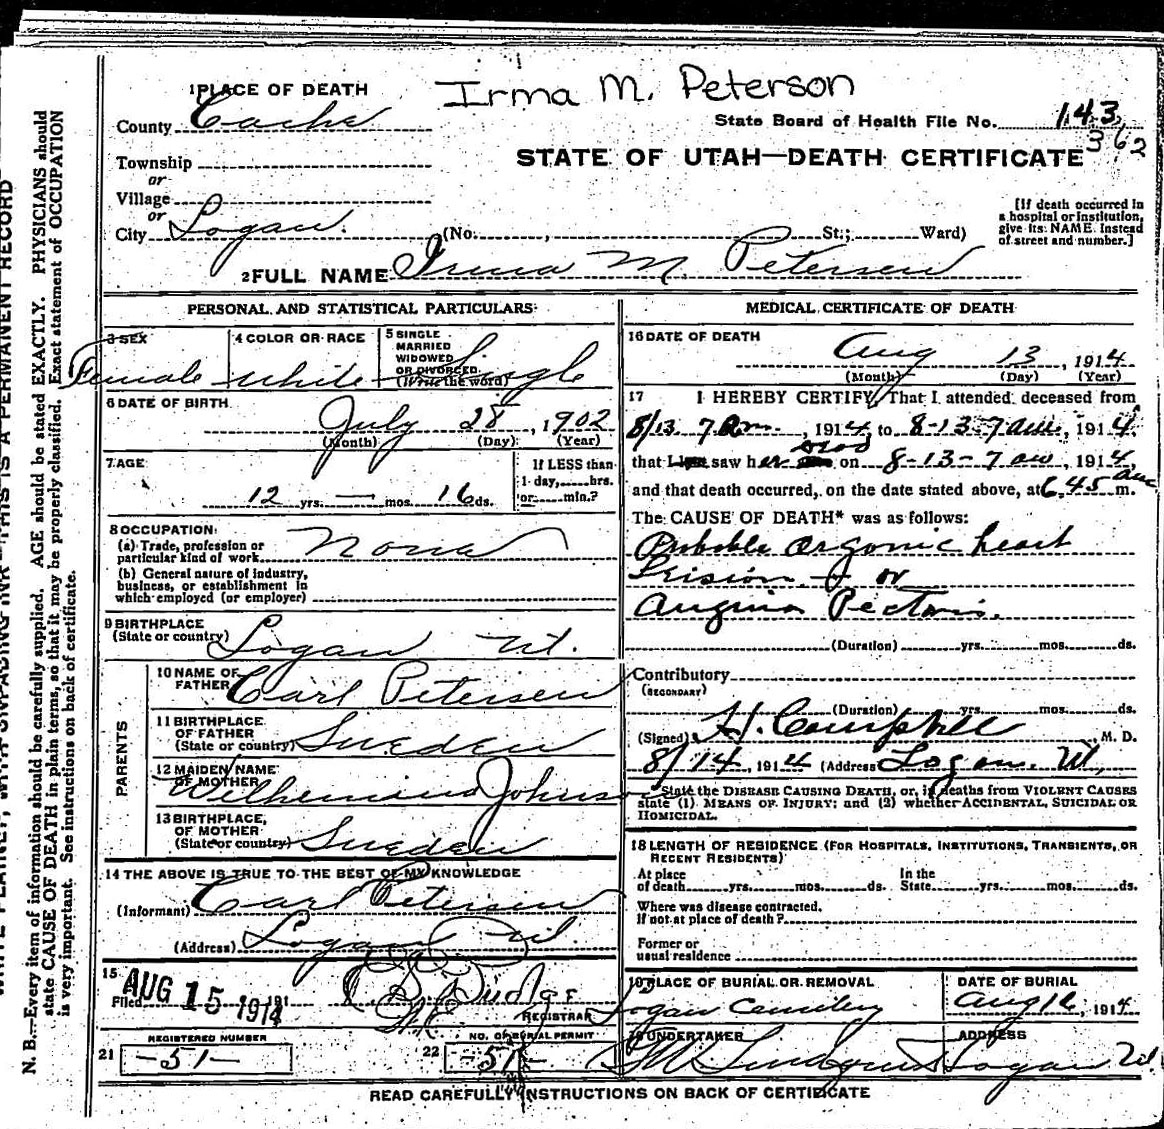 Irma M. Peterson
1 PLACE OF DEATH
County Cache
State Board of Health File No. 143
362
STATE OF UTAH—DEATH CERTIFICATE
Township
or
Village
or
City Logan. (No. , St.; Ward)
[If death occurred in
a hospital or institution,
give its NAME. Instead
of street and number.]
2 FULL NAME Irma M Petersen
PERSONAL AND STATISTICAL PARTICULARS
3 SEX
Female
4 COLOR OR RACE
White
5 SINGLE
MARRIED
WIDOWED
OR DIVORCED
(Write the word)
Single
6 DATE OF BIRTH
July 28, 1902
(Month) (Day) (Year)
7 AGE
12 yrs. — mos. 16 ds.
If LESS than
1 day, hrs.
or min.?
8 OCCUPATION
(a) Trade, profession or
particular kind of work None
(b) General nature of industry,
business, or establishment in
which employed (or employer)
9 BIRTHPLACE
(State or country) Logan Ut.
PARENTS
10 NAME OF
FATHER Carl Petersen
11 BIRTHPLACE
OF FATHER
(State or country) Sweden
12 MAIDEN NAME
OF MOTHER
Wilhemina Johnson
13 BIRTHPLACE
OF MOTHER
(State or country) Sweden
14 THE ABOVE IS TRUE TO THE BEST OF MY KNOWLEDGE
(Informant) Carl Petersen
(Address) Logan Ut.
15
Filed AUG 15 1914 191
REGISTRAR
REGISTERED NUMBER
21 -51-
NO. OF BURIAL PERMIT
22 -51-
MEDICAL CERTIFICATE OF DEATH
16 DATE OF DEATH
Aug 13, 1914
(Month) (Day) (Year)
17 I HEREBY CERTIFY, That I attended deceased from
8/13 7 am., 1914, to 8-13-7 am, 1914,
that I saw her dead on 8-13-7 am, 1914,
and that death occurred, on the date stated above, at 6.45 am m.
The CAUSE OF DEATH* was as follows:
Probable organic heart
Lision or
Angina Pectoris.
(Duration) yrs. mos. ds.
Contributory
(SECONDARY)
(Duration) yrs. mos. ds.
(Signed) H. Campbell M. D.
8/14, 1914 (Address) Logan. Ut,
State the DISEASE CAUSING DEATH, or, in deaths from VIOLENT CAUSES
state (1) MEANS OF INJURY; and (2) whether ACCIDENTAL, SUICIDAL OR
HOMICIDAL.
18 LENGTH OF RESIDENCE (FOR HOSPITALS, INSTITUTIONS, TRANSIENTS, OR
RECENT RESIDENTS)
At place
of death yrs. mos. ds.
In the
State yrs. mos. ds.
Where was disease contracted,
If not at place of death?
Former or
usual residence
19 PLACE OF BURIAL OR REMOVAL
Logan Cemetery
DATE OF BURIAL
Aug 16, 1914
20 UNDERTAKER
ADDRESS
Logan Ut
READ CAREFULLY INSTRUCTIONS ON BACK OF CERTIFICATE
THIS IS A PERMANENT RECORD
N. B.—Every item of information should be carefully supplied. AGE should be stated EXACTLY. PHYSICIANS should
state CAUSE OF DEATH in plain terms, so that it may be properly classified. Exact statement of OCCUPATION
is very important. See instructions on back of certificate.